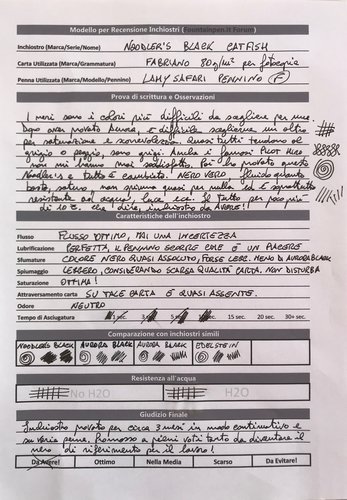 Modello per Recensione Inchiostri (Fountainpen.it Forum)
Inchiostro (Marca/Serie/Nome) NOODLER'S BLACK CATFISH
Carta Utilizzata (Marca/Grammatura) FABRIANO 80g/m² per fotocopia
Penna Utilizzata (Marca/Modello/Pennino) LAMY SAFARI PENNINO F
Prova di scrittura e Osservazioni
I neri sono i colori più difficili da scegliere per me.
Dopo aver provato Aurora, è difficile sceglierne un altro
per saturazione e scorrevolezza. Quasi tutti tendono al
grigio o peggio, sono grigi. Anche i famosi Pilot
non mi hanno mai soddisfatto. Poi ho provato questo
Noodler's e tutto è cambiato. NERO VERO, fluido quanto
basta, saturo, non spiuma quasi per nulla ed è soprattutto
resistente ad acqua, luce ecc. Il tutto per poco più
di 10 €. Che dire, inchiostro da AVERE!!
Caratteristiche dell'inchiostro
Flusso FLUSSO OTTIMO, MAI UNA INCERTEZZA
Lubrificazione PERFETTA, IL PENNINO SCORRE CHE È UN PIACERE
Sfumature COLORE NERO QUASI ASSOLUTO, FORSE LEGG. MENO DI AURORA BLACK
Spiumaggio LEGGERO, CONSIDERANDO SCARSA QUALITÀ CARTA. NON DISTURBA
Saturazione OTTIMA!
Attraversamento carta SU TALE CARTA È QUASI ASSENTE.
Odore NEUTRO
Tempo di Asciugatura 1 sec. 15 sec. 20 sec. 30+ sec.
Comparazione con inchiostri simili
NOODLER'S BLACK AURORA BLACK AURORA BLACK EDELSTEIN
Resistenza all'acqua
No H2O H2O
Giudizio Finale
Inchiostro provato per circa 3 mesi in modo continuativo e
su varie penne, promosso a pieni voti tanto da diventare il
nero di riferimento per il lavoro!
Da Avere! Ottimo Nella Media Scarso Da Evitare!